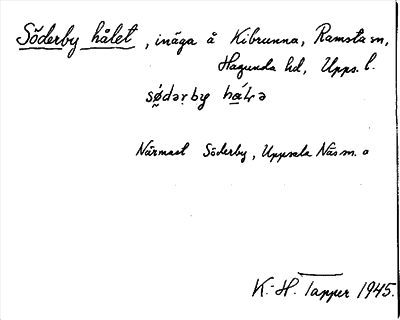 Söderby hålet, inäga å Kibrunna, Ramsta sn,
Hagunda hd, Upps. l.
sǿdərby há̱Lə
Närmast Söderby, Uppsala Näs sn. o
K.-H. Tapper 1945.